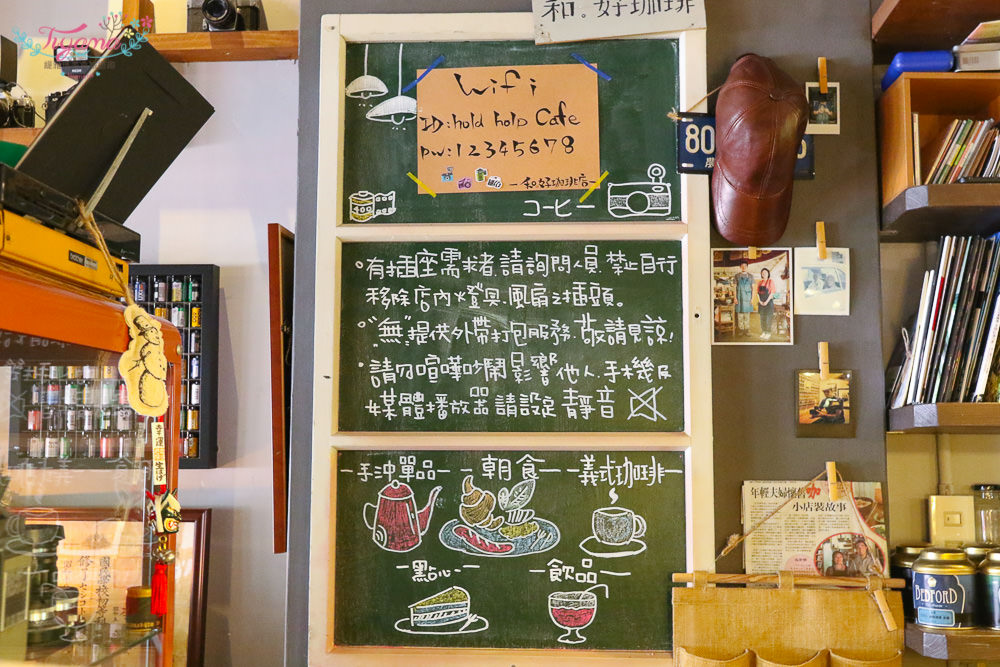 和。好珈琲
Tiyama
Wifi
ID:hold holp Cafe
PW:12345678
一和好珈琲店
400
コーヒー
80
。有插座需求者、請詢問人員、禁止自行
移除店內燈具、風扇之插頭。
。"無"提供外帶打包服務、敬請見諒!
。請勿喧嘩吵鬧影響他人、手機及
媒體播放品請設定靜音
手沖單品
朝食
義式珈琲
點心
飲品
年輕夫婦懷舊咖
小店裝故事
BEDFORD
brother